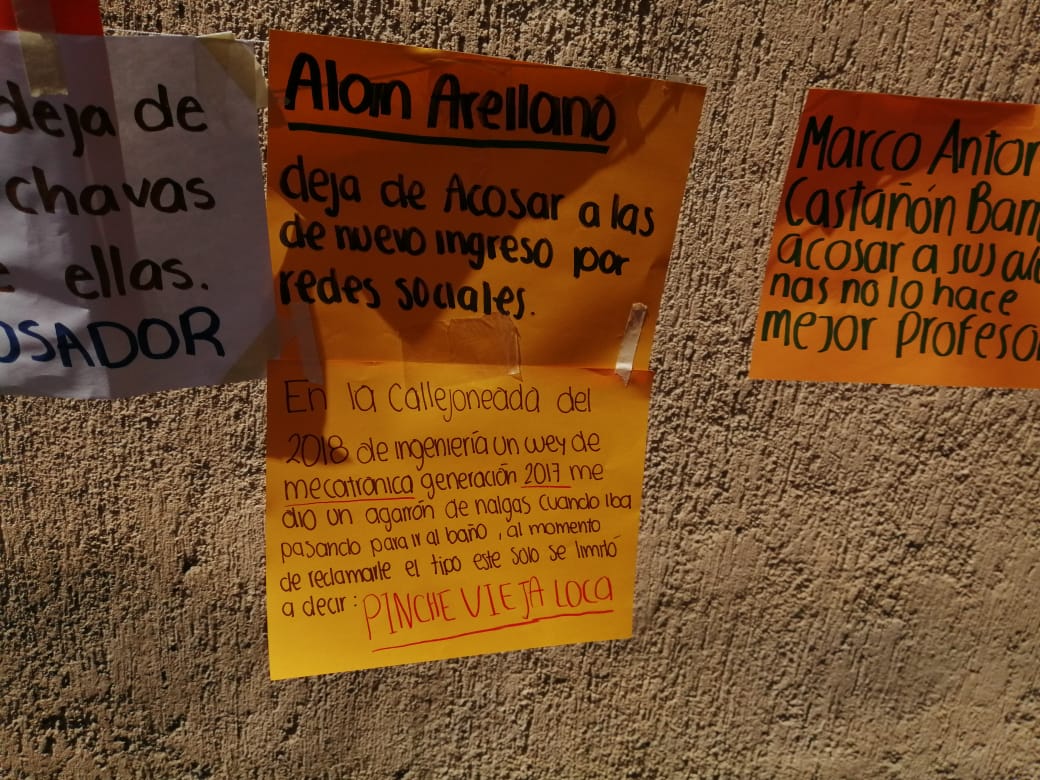 deja de
chavas
ellas.
OSADOR
Alan Arellano
deja de Acosar a las
de nuevo ingreso por
redes sociales.
En la Callejoneada del
2018 de ingeniería un wey de
mecatronica generación 2017 me
dio un agarrón de nalgas cuando iba
pasando para ir al baño, al momento
de reclamarle el tipo este solo se limitó
a decir: PINCHE VIEJA LOCA
Marco Anton
Castañón Barr
acosar a sus alu
nas no lo hace
mejor Profesor